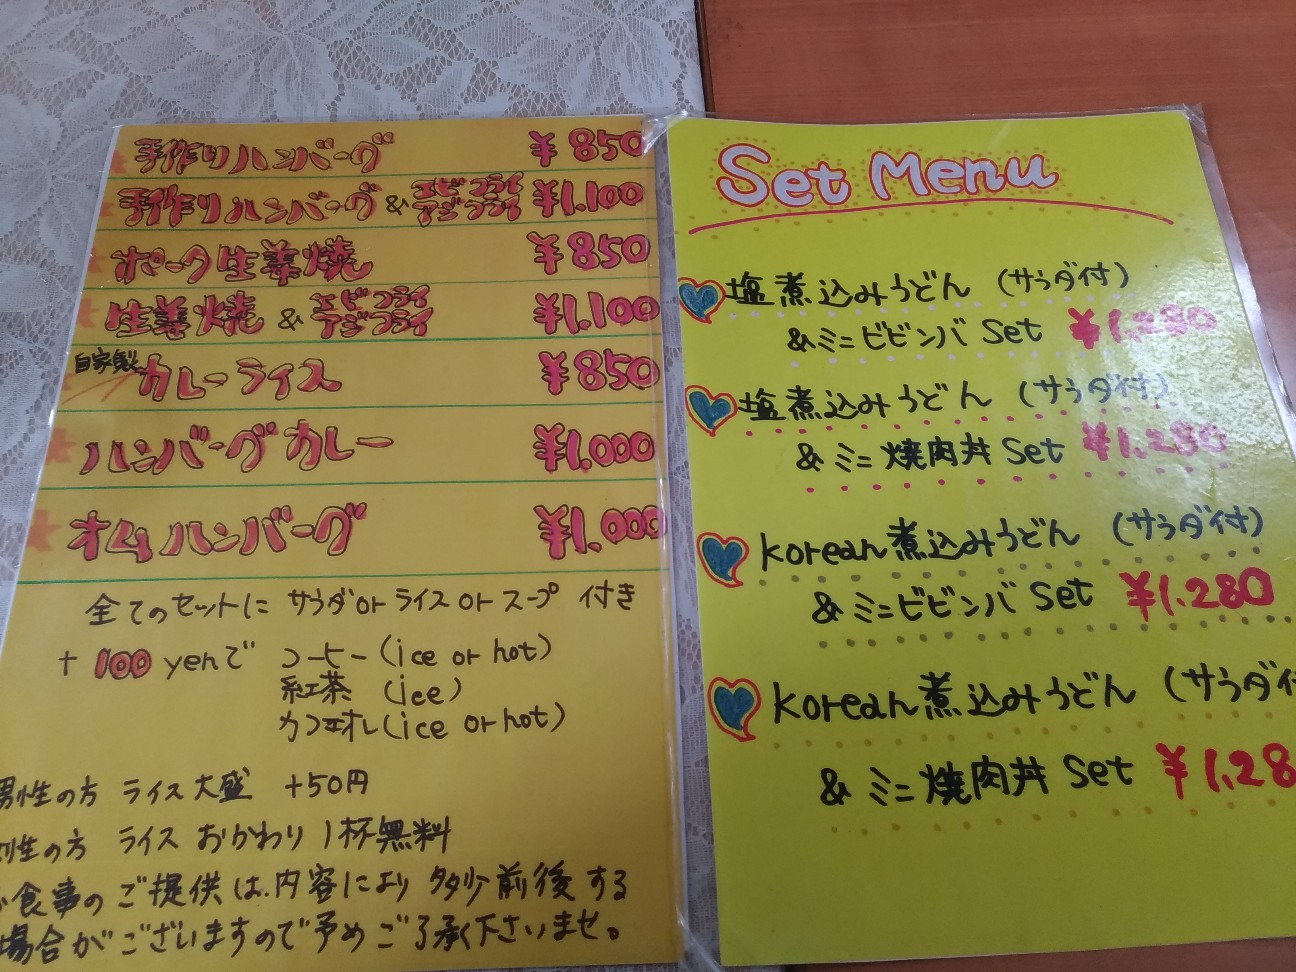 手作りハンバーグ ¥850
手作りハンバーグ & エビフライ アジフライ ¥1.100
ポーク生姜焼 ¥850
生姜焼 & エビフライ アジフライ ¥1.100
自家製カレーライス ¥850
ハンバーグカレー ¥1.000
オムハンバーグ ¥1.000
全てのセットに サラダorライスorスープ 付き
+ 100 yenで コーヒー(ice or hot)
紅茶 (ice)
カフェオレ(ice or hot)
男性の方 ライス大盛 +50円
性の方 ライス おかわり1杯無料
食事のご提供は、内容により多少前後する
場合がございますので予めご了承下さいませ。
Set Menu
塩煮込みうどん (サラダ付)
&ミニビビンバ Set ¥1.280
塩煮込みうどん (サラダ付)
& ミニ焼肉丼 Set ¥1.280
korean煮込みうどん (サラダ付)
& ミニビビンバ Set ¥1.280
korean煮込みうどん (サラダ付
& ミニ焼肉丼 Set ¥1.28